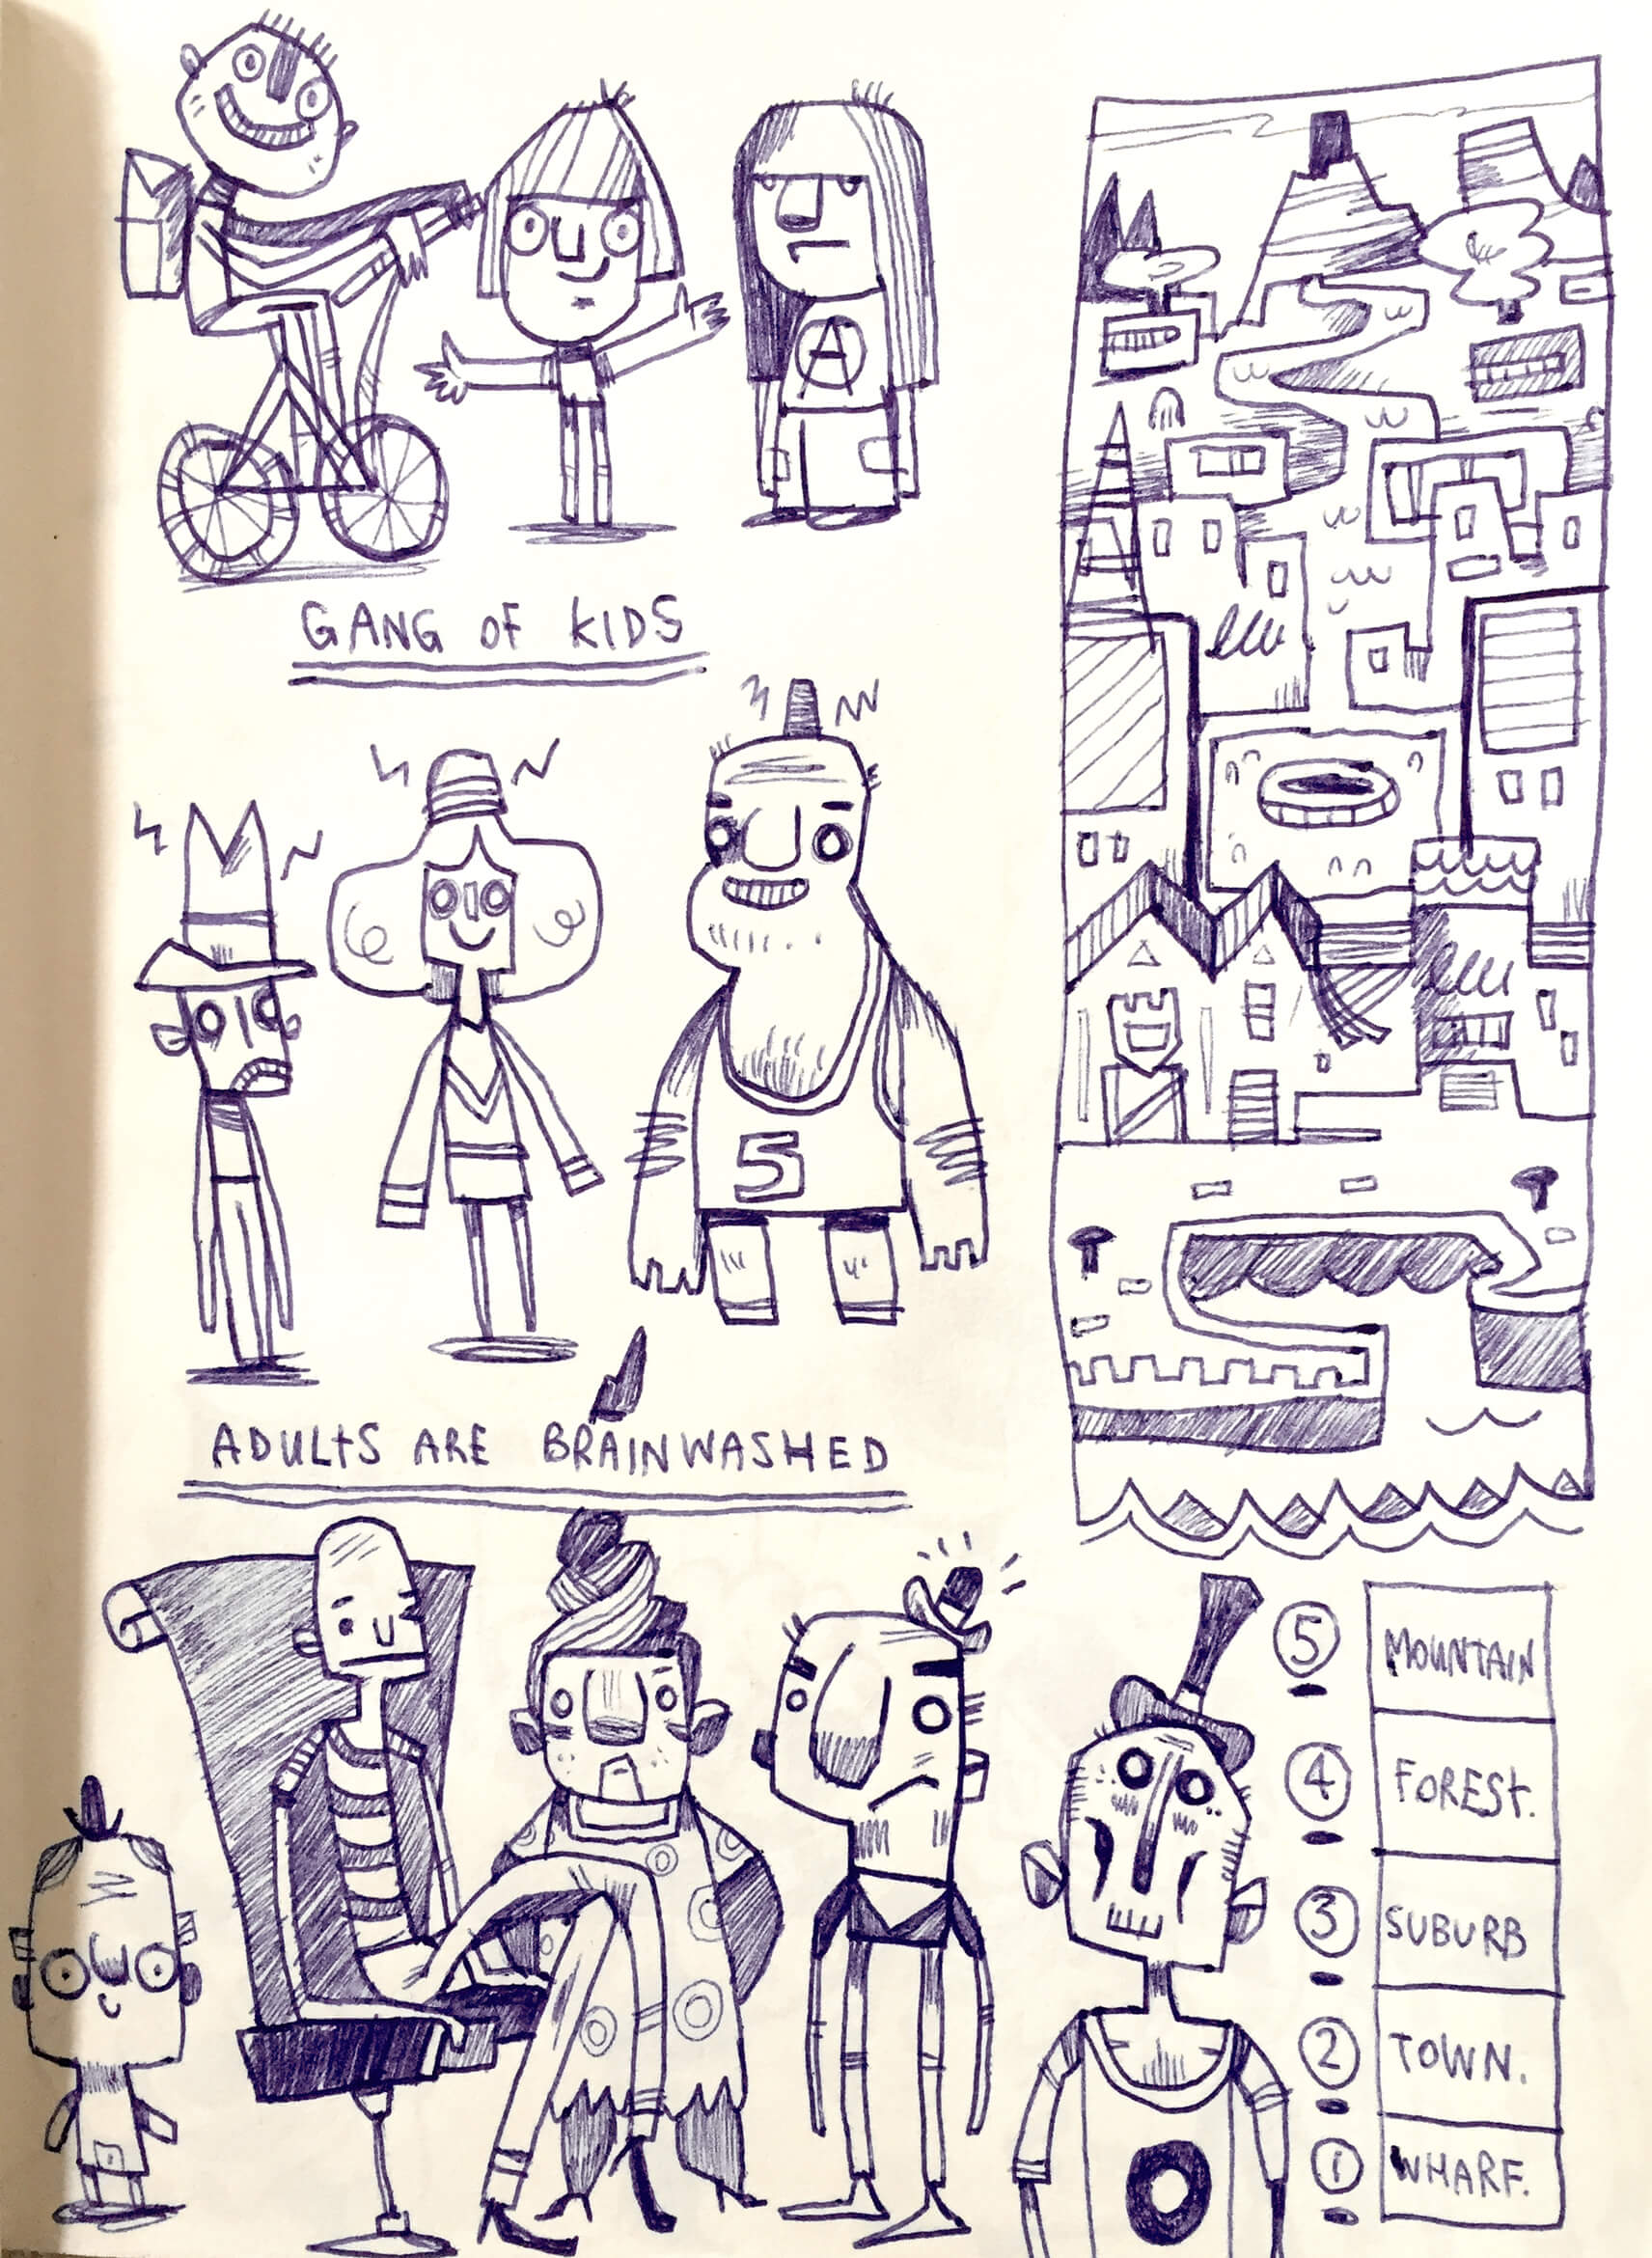 GANG OF KIDS
A
5
ADULTS ARE BRAINWASHED
5 MOUNTAIN
4 FOREST.
3 SUBURB
2 TOWN.
1 WHARF.